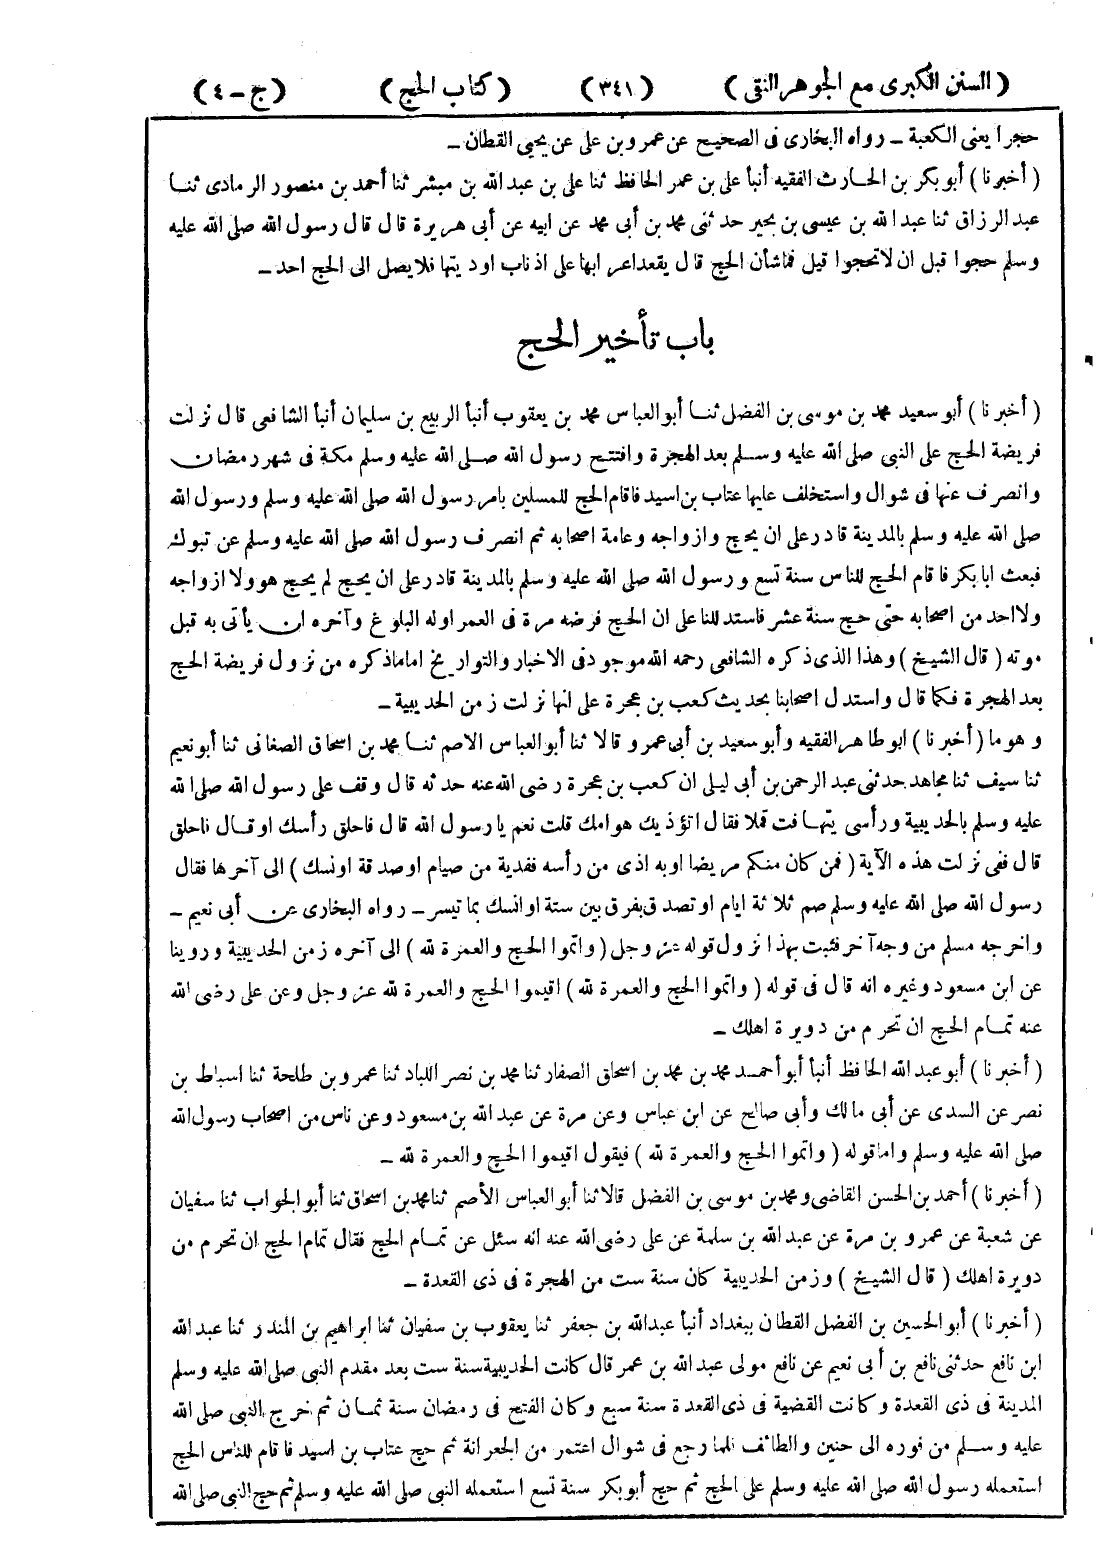 (السنن الكبرى مع الجوهر النقى) (٣٤١) (كتاب الحج) (ج - ٤)
حجرا يعنى الكعبة - رواه البخارى فى الصحيح عن عمرو بن على عن يحيى القطان -
(أخبرنا) أبو بكر بن الحارث الفقيه أنبأ على بن عمر الحافظ ثنا على بن عبد الله بن مبشر ثنا أحمد بن منصور الرمادى ثنا
عبد الرزاق ثنا عبد الله بن عيسى بن بحير حدثنى محمد بن أبى محمد عن ابيه عن أبى هريرة قال قال رسول الله صلى الله عليه
وسلم حجوا قبل ان لا تحجوا قيل فما شأن الحج قال يقعد اعرابها على اذناب اوديتها فلا يصل الى الحج احد -
باب تأخير الحج
(أخبرنا) أبو سعيد محمد بن موسى بن الفضل ثنا أبو العباس محمد بن يعقوب أنبأ الربيع بن سليمان أنبأ الشافعى قال نزلت
فريضة الحج على النبى صلى الله عليه وسلم بعد الهجرة وافتتح رسول الله صلى الله عليه وسلم مكة فى شهر رمضان
وانصرف عنها فى شوال واستخلف عليها عتاب بن اسيد فاقام الحج للمسلمين بامر رسول الله صلى الله عليه وسلم ورسول الله
صلى الله عليه وسلم بالمدينة قادر على ان يحج وازواجه وعامة اصحابه ثم انصرف رسول الله صلى الله عليه وسلم عن تبوك
فبعث ابا بكر فاقام الحج للناس سنة تسع ورسول الله صلى الله عليه وسلم بالمدينة قادر على ان يحج لم يحج هو ولا ازواجه
ولا احد من اصحابه حتى حج سنة عشر فاستدللنا على ان الحج فرضه مرة فى العمر اوله البلوغ وآخره ان يأتى به قبل
موته (قال الشيخ) وهذا الذى ذكره الشافعى رحمه الله موجود فى الاخبار والتواريخ اما ما ذكره من نزول فريضة الحج
بعد الهجرة فكما قال واستدل اصحابنا بحديث كعب بن عجرة على انها نزلت زمن الحديبية -
وهو ما (أخبرنا) ابو طاهر الفقيه وأبو سعيد بن أبى عمرو قالا ثنا أبو العباس الاصم ثنا محمد بن اسحاق الصغانى ثنا أبو نعيم
ثنا سيف ثنا مجاهد حدثنى عبد الرحمن بن أبى ليلى ان كعب بن عجرة رضى الله عنه حدثه قال وقف على رسول الله صلى الله
عليه وسلم بالحديبية ورأسى يتهافت قملا فقال اتؤذيك هوامك قلت نعم يا رسول الله قال فاحلق رأسك او قال فاحلق
قال ففى نزلت هذه الآية (فمن كان منكم مريضا او به اذى من رأسه ففدية من صيام او صدقة او نسك) الى آخرها فقال
رسول الله صلى الله عليه وسلم صم ثلاثة ايام او تصدق بفرق بين ستة او انسك بما تيسر - رواه البخارى عن أبى نعيم -
واخرجه مسلم من وجه آخر فثبت بهذا نزول قوله عز وجل (واتموا الحج والعمرة لله) الى آخره زمن الحديبية وروينا
عن ابن مسعود وغيره انه قال فى قوله (واتموا الحج والعمرة لله) اقيموا الحج والعمرة لله عز وجل وعن على رضى الله
عنه تمام الحج ان تحرم من دويرة اهلك -
(أخبرنا) أبو عبد الله الحافظ أنبأ أبو أحمد محمد بن محمد بن اسحاق الصفار ثنا محمد بن نصر اللباد ثنا عمرو بن طلحة ثنا اسباط بن
نصر عن السدى عن أبى مالك وأبى صالح عن ابن عباس وعن مرة عن عبد الله بن مسعود وعن ناس من اصحاب رسول الله
صلى الله عليه وسلم واما قوله (واتموا الحج والعمرة لله) فيقول اقيموا الحج والعمرة لله -
(أخبرنا) أحمد بن الحسن القاضى ومحمد بن موسى بن الفضل قالا ثنا أبو العباس الأصم ثنا محمد بن اسحاق ثنا أبو الجواب ثنا سفيان
عن شعبة عن عمرو بن مرة عن عبد الله بن سلمة عن على رضى الله عنه انه سئل عن تمام الحج فقال تمام الحج ان تحرم من
دويرة اهلك (قال الشيخ) وزمن الحديبية كان سنة ست من الهجرة فى ذى القعدة -
(أخبرنا) أبو الحسين بن الفضل القطان ببغداد أنبأ عبد الله بن جعفر ثنا يعقوب بن سفيان ثنا ابراهيم بن المنذر ثنا عبد الله
ابن نافع حدثنى نافع بن أبى نعيم عن نافع مولى عبد الله بن عمر قال كانت الحديبية سنة ست بعد مقدم النبى صلى الله عليه وسلم
المدينة فى ذى القعدة وكانت القضية فى ذى القعدة سنة سبع وكان الفتح فى رمضان سنة ثمان ثم خرج النبى صلى الله
عليه وسلم من فوره الى حنين والطائف فلما رجع فى شوال اعتمر من الجعرانة ثم حج عتاب بن اسيد فاقام للناس الحج
استعمله رسول الله صلى الله عليه وسلم على الحج ثم حج أبو بكر سنة تسع استعمله النبى صلى الله عليه وسلم ثم حج النبى صلى الله